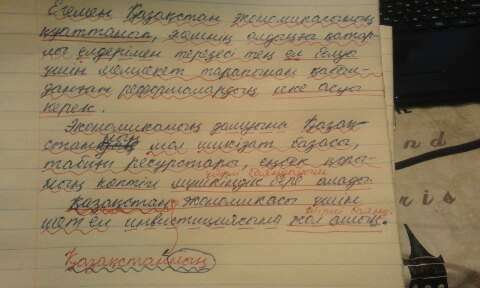 Егемен Қазақстан экономикасының
қуаттанып, әлемнің алдыңғы қатар-
лы елдерімен терезесі тең ел болуы
үшін мемлекет тарапынан қабыл-
данған реформалардың іске асуы
керек.
Экономиканың дамуына Қазақ-
станның мол шикізат базасы,
табиғи ресурстары, еңбек қоры-
ның көптігі мүмкіндік бере алады
Қазақстан экономикасы үшін
шет ел инвестициясына жол ашық.
Қазақстанның
n d
r i s